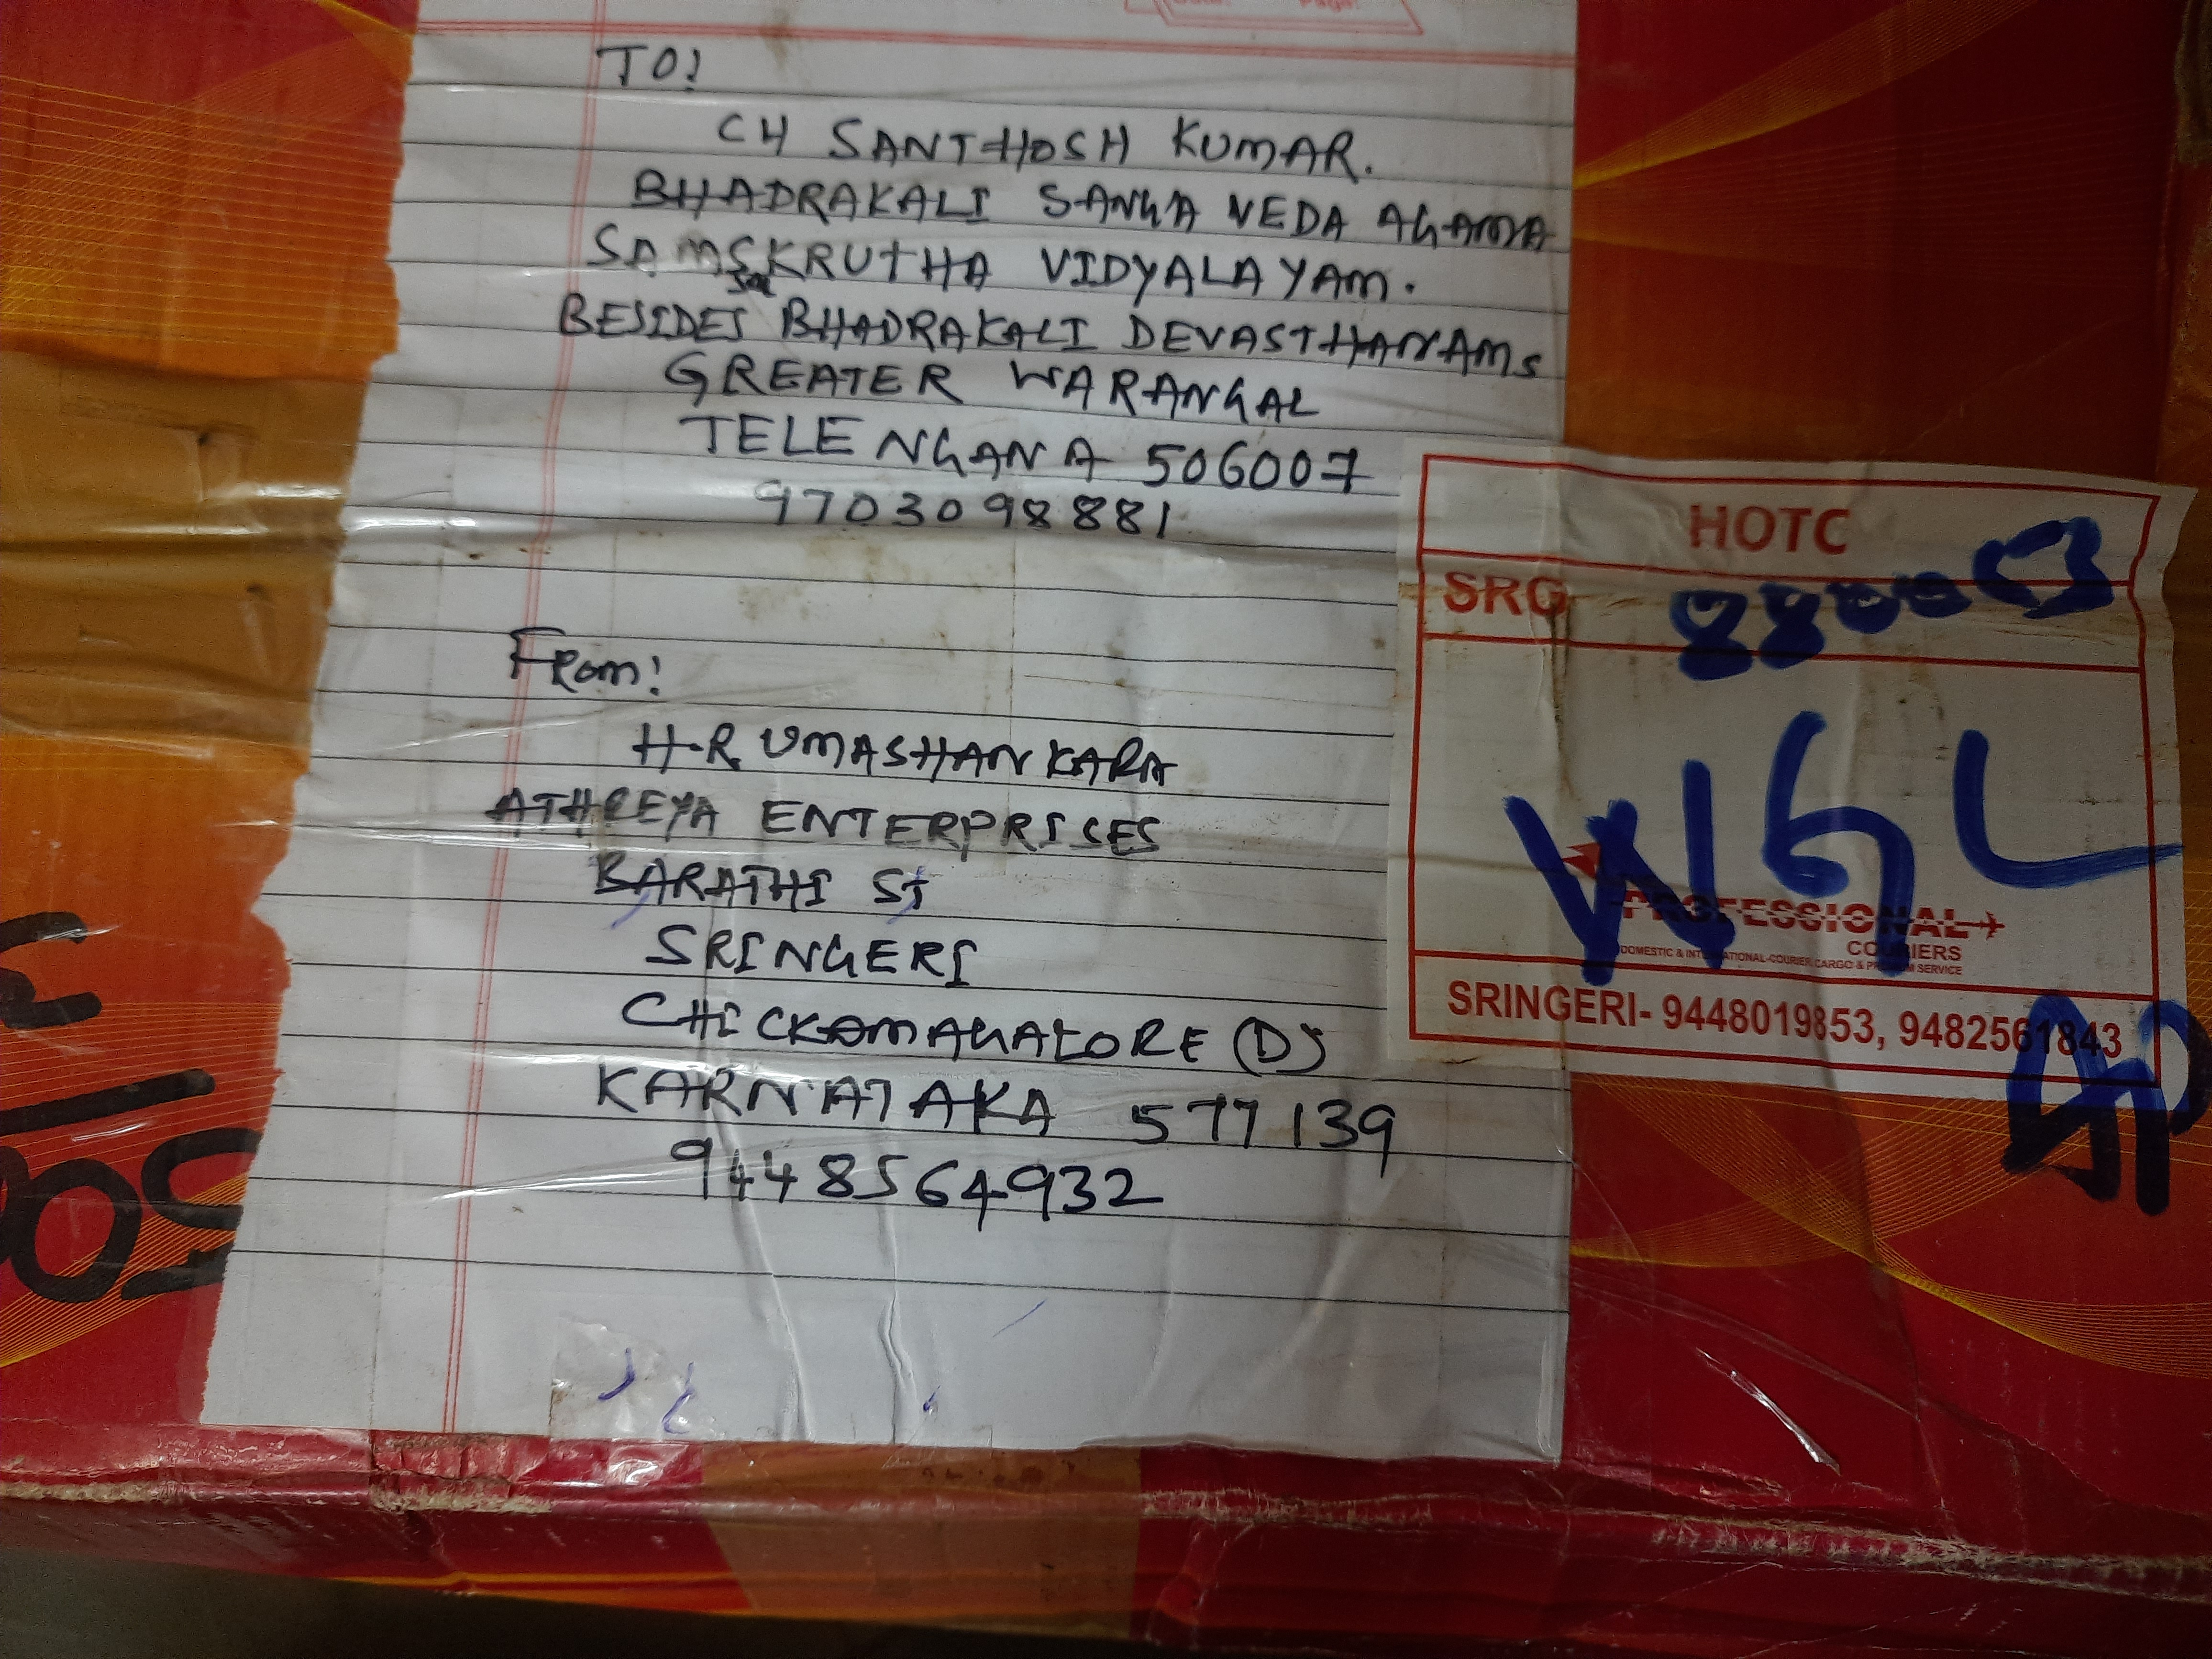 TO:
CH SANTHOSH KUMAR.
BHADRAKALI SANGA VEDA AGAMA
SAMSKRUTHA VIDYALAYAM.
BESIDES BHADRAKALI DEVASTHANAMS
GREATER WARANGAL
TELENGANA 506007
9703098881
From:
H.R UMASHANKARA
ATHREYA ENTERPRISES
BARATHI ST
SRINGERI
CHICKAMAGALORE (D)
KARNATAKA 577139
9448564932
HOTC
SRG
WGL
PROFESSIONAL
COURIERS
DOMESTIC & INTERNATIONAL-COURIER, CARGO & PREMIUM SERVICE
SRINGERI- 9448019853, 9482561843